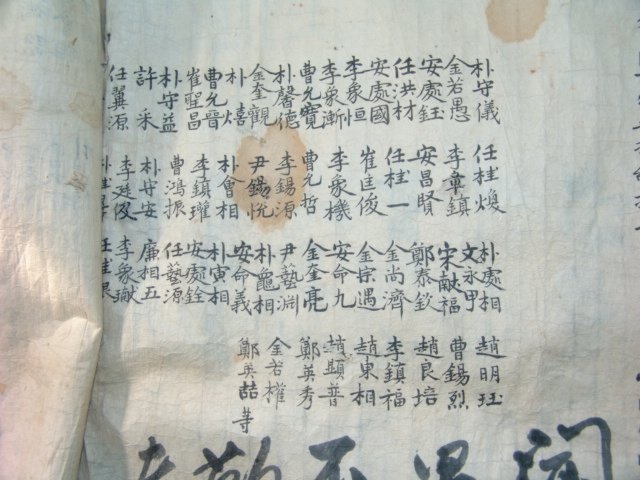 朴守儀
金若愚
安處鈺
任洪材
安處國
李象恒
李象漸
曹允寬
朴馨德
金奎觀
朴熺
曹允晋
崔聖昌
朴守益
許采
任翼源
任桂煥
李章鎮
安昌賢
任桂一
崔匡俊
李象機
曹允哲
李錫源
尹錫悅
朴會相
李鎮瓘
曹鴻振
朴守安
李廷俊
朴處相
文永甲
宋献福
鄭泰欽
金尚濟
金宗遇
安命九
金奎亮
尹藝淵
朴龜相
安命義
朴寅相
安處銓
任藝源
廉相五
李象瓛
任桂
趙明珏
曹錫烈
趙良培
李鎮福
趙東相
趙顯普
鄭英秀
金若權
鄭英喆等